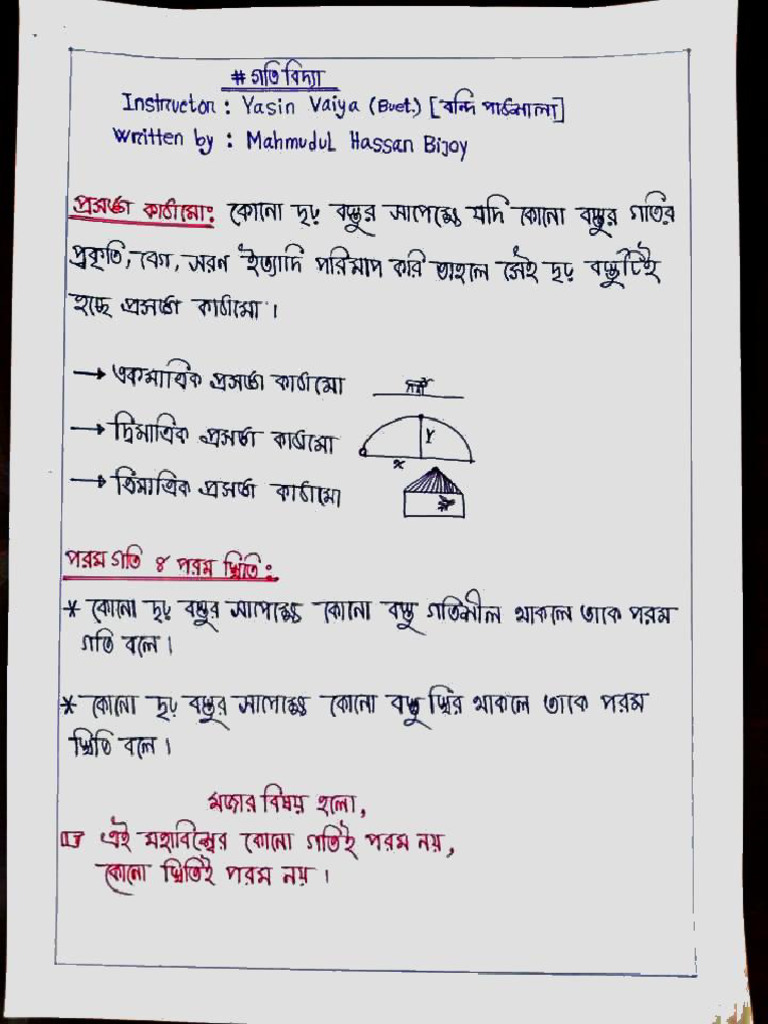 # গতি বিদ্যা
Instructor : Yasin Vaiya (Buet.) [বন্দি পাঠশালা]
Written by : Mahmudul Hassan Bijoy
প্রসঙ্গ কাঠামো: কোনো দৃঢ় বস্তুর সাপেক্ষে যদি কোনো বস্তুর গতির
প্রকৃতি, বেগ, সরণ ইত্যাদি পরিমাপ করি তাহলে সেই দৃঢ় বস্তুটিই
হচ্ছে প্রসঙ্গ কাঠামো।
→ একমাত্রিক প্রসঙ্গ কাঠামো
→ দ্বিমাত্রিক প্রসঙ্গ কাঠামো Y
x
→ ত্রিমাত্রিক প্রসঙ্গ কাঠামো
পরম গতি ও পরম স্থিতি:
* কোনো দৃঢ় বস্তুর সাপেক্ষে কোনো বস্তু গতিশীল থাকলে তাকে পরম
গতি বলে।
* কোনো দৃঢ় বস্তুর সাপেক্ষে কোনো বস্তু স্থির থাকলে তাকে পরম
স্থিতি বলে।
মজার বিষয় হলো,
এই মহাবিশ্বের কোনো গতিই পরম নয়,
কোনো স্থিতিই পরম নয়।